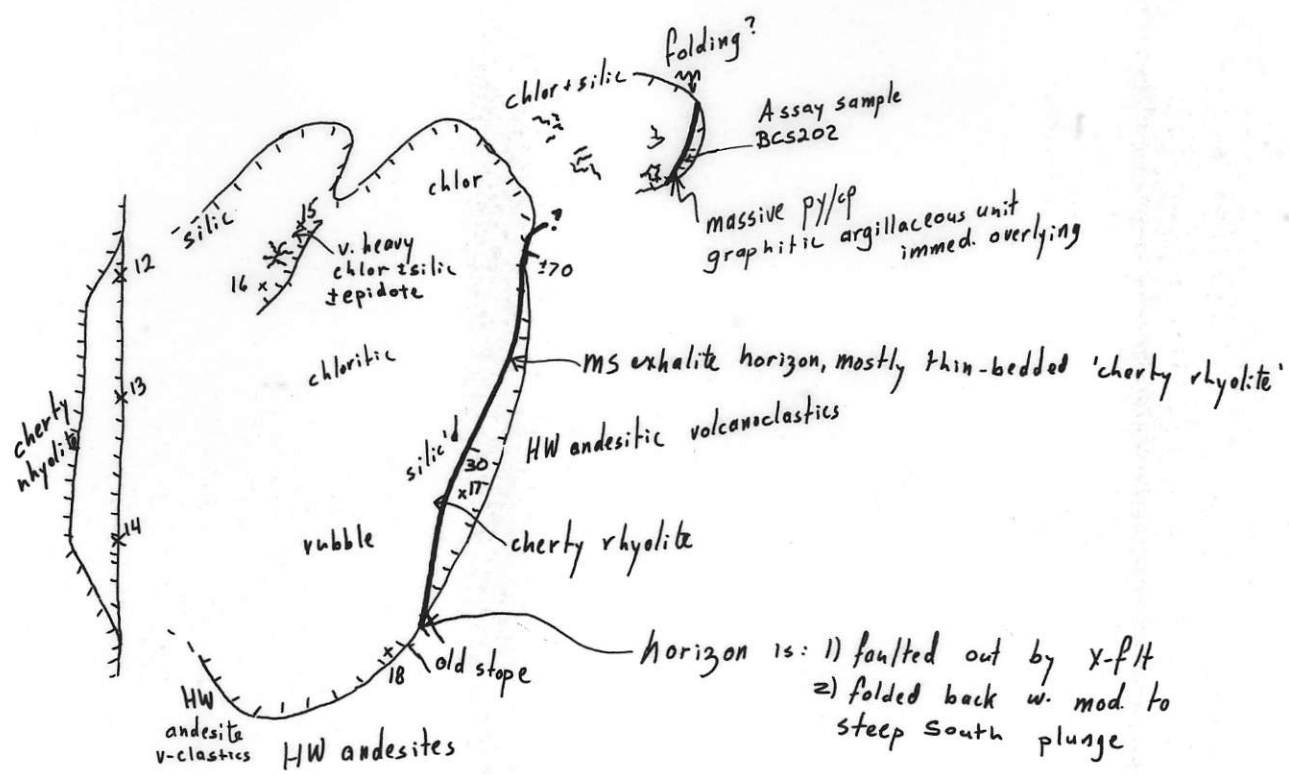 folding?
chlor + silic
Assay sample
BCS202
chlor
massive py/cp
graphitic argillaceous unit
immed. overlying
silic
15
v. heavy
chlor ± silic
± epidote
16 x
?
±70
12
chloritic
ms exhalite horizon, mostly thin-bedded 'cherty rhyolite'
13
cherty
rhyolite
HW andesitic volcanoclastics
silic'd
30
x17
14
rubble
cherty rhyolite
old stope
18
horizon is: 1) faulted out by X-flt
2) folded back w. mod. to
steep South plunge
HW
andesite
v-clastics
HW andesites